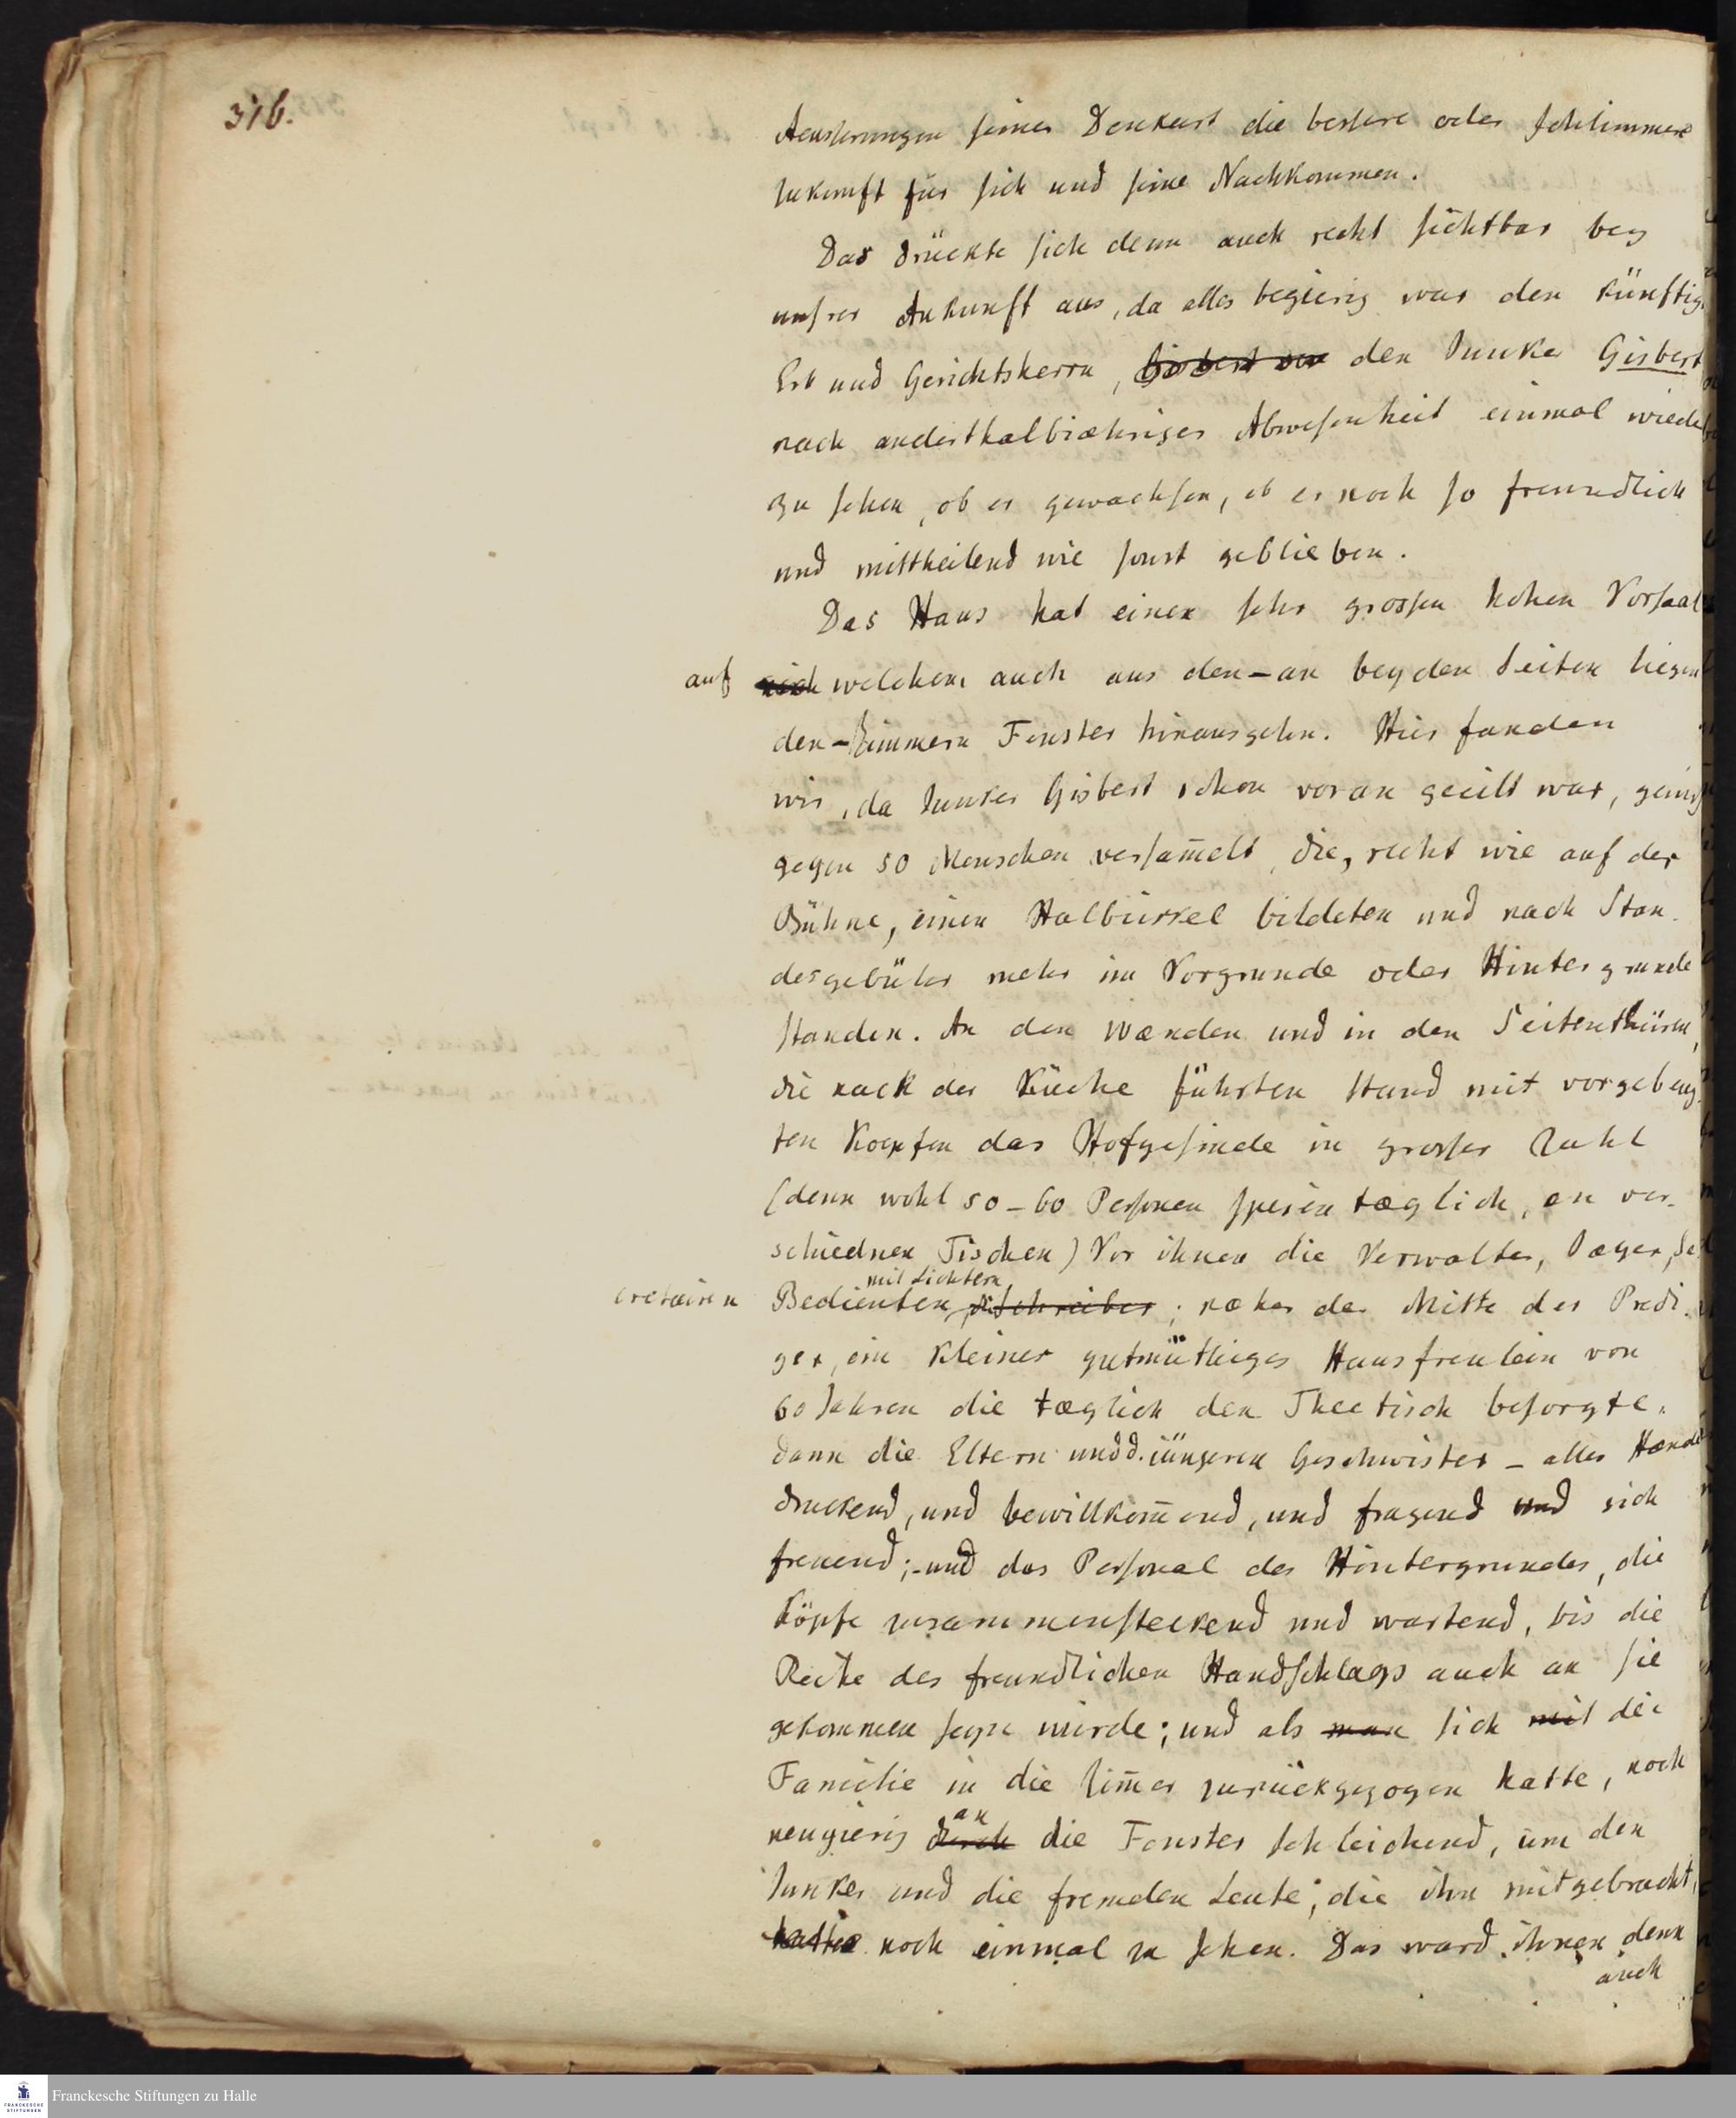 316.
Aeusserungen seiner Denkart die bessere oder schlimmere
Zukunft für sich und seine Nachkommen.
Das drückte sich denn auch recht sichtbar bey
unsrer Ankunft aus, da alles begierig war den künftig
Erb und Gerichtsherrn, Gisbert von den Junker Gisbert
nach anderthalbiæhriger Abwesenheit einmal wieder
zu sehen, ob er gewachsen, ob er noch so freundlich
und mittheilend wie sonst geblieben.
Das Haus hat einen sehr grossen hohen Vorsaal
auf welchem auch aus den-an beyden Seiten liegen
den-Zimmern Fenster hinausgehn. Hier fanden
wir, da Junker Gisbert schon voran geeilt war, gewiß
gegen 50 Menschen versam̅elt, die, recht wie auf der
Bühne, einen Halbcirkel bildeten und nach Stan-
desgebühr mehr im Vorgrunde oder Hintergrunde
standen. An den Wænden und in den Seitenthüren,
die nach der Küche führten stand mit vorgebeug
ten Koepfen das Hofgesinde in grosser Zahl
(denn wohl 50-60 Personen speisen tæglich, an ver-
schiednen Tischen) Vor ihnen die Verwalter, Jæger, Se
cretairen Bedienten mit Lichtern, Schreiber; næher der Mitte der Predi-
ger, ein kleines gutmüthiges Hausfreulein von
60 Jahren die tæglich den Theetisch besorgte,
dann die Eltern und d. iüngeren Geschwister - alles Hænde
druckend, und bewillkom̅end, und fragend und sich
freuend;-und das Personal des Hintergrundes, die
Köpfe zusammensteckend und wartend, bis die
Reihe des freundlichen Handschlags auch an sie
gekommen seyn würde; und als man sich mit die
Familie in die Zim̅er zurückgezogen hatte, noch
neugierig durch an die Fenster schleichend, um den
Junker und die fremden Leute, die ihn mitgebracht,
hatten noch einmal zu sehen. Das ward ihnen denn
auch
Franckesche Stiftungen zu Halle
FRANCKESCHE
STIFTUNGEN